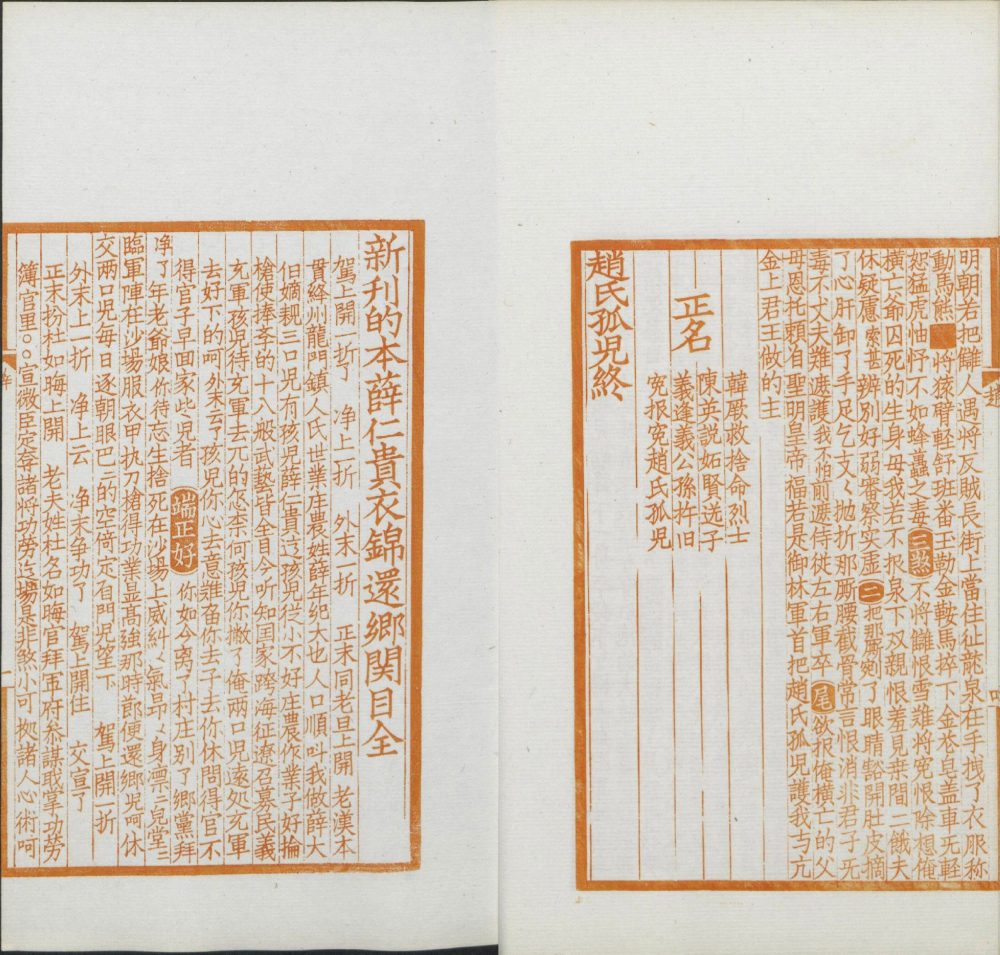 明朝若把讎人遇将反賊長街上當住征𩢴泉在手拽了衣服称
動馬熊■将猿臂軽舒班番玉勒金鞍馬捽下金花皂盖車死軽
恕猛虎怞怀不如蜂蠆之毒三煞不将讎恨雪难将冤恨除想俺
横亡爷囚死的生身母我若不报泉下双親恨羞見桒間二餓夫
休疑慮索甚辨別好弱審察実虚二把那厮剜了眼睛豁開肚皮摘
了心肝卸了手足乞支〻抛折那厮腰截骨常言恨消非君子无
毒不丈夫難遮護我不怕前遮侍従左右軍卒尾欲报俺横亡的父
母恩托頼自聖明皇帝福若是御林軍首把趙氏孤児護我与亢
金上君王做的主
正名
韓厥救捨命烈士
陳英説妬賢送子
義逢義公孫杵臼
冤报冤趙氏孤児
趙氏孤児終
新刊的本薛仁貴衣錦還鄉関目全
駕上開一折了 净上一折 外末一折 正末同老旦上開 老漢本
貫絳州龍門鎮人氏世業庄農姓薛年纪大也人口順呌我做薛大
伯嫡親三口児有孩児薛仁貴这孩児従小不好庄農作業子好掄
槍使捧李的十八般武藝皆全自今听知国家跨海征遼召募民義
充軍孩児待充軍去元的怎柰何孩児你撇了俺両口児逐処充軍
去好下的呵外末云了孩児你心去意难留你去子去你休問得官不
得官子早回家些児者 端正好 你如今离了村庄别了鄉黨拜
净了年老爺娘你待忘生捨死在沙場上威糾〻氣昂〻身凛〻皃堂〻
臨軍陣在沙場服衣甲执刀槍得功業显高強那時節便還鄉児呵休
交両口児每日逐朝眼巴〻的空倚定着門児望下 駕上開一折
外末上一折 净上云 净末争功了 駕上開住 交宣了
正末扮杜如晦上開 老夫姓杜名如晦官拜軍府参謀戝掌功勞
簿官里〇〇宣微臣定夺諸将功勞这場是非煞小可擬諸人心術呵